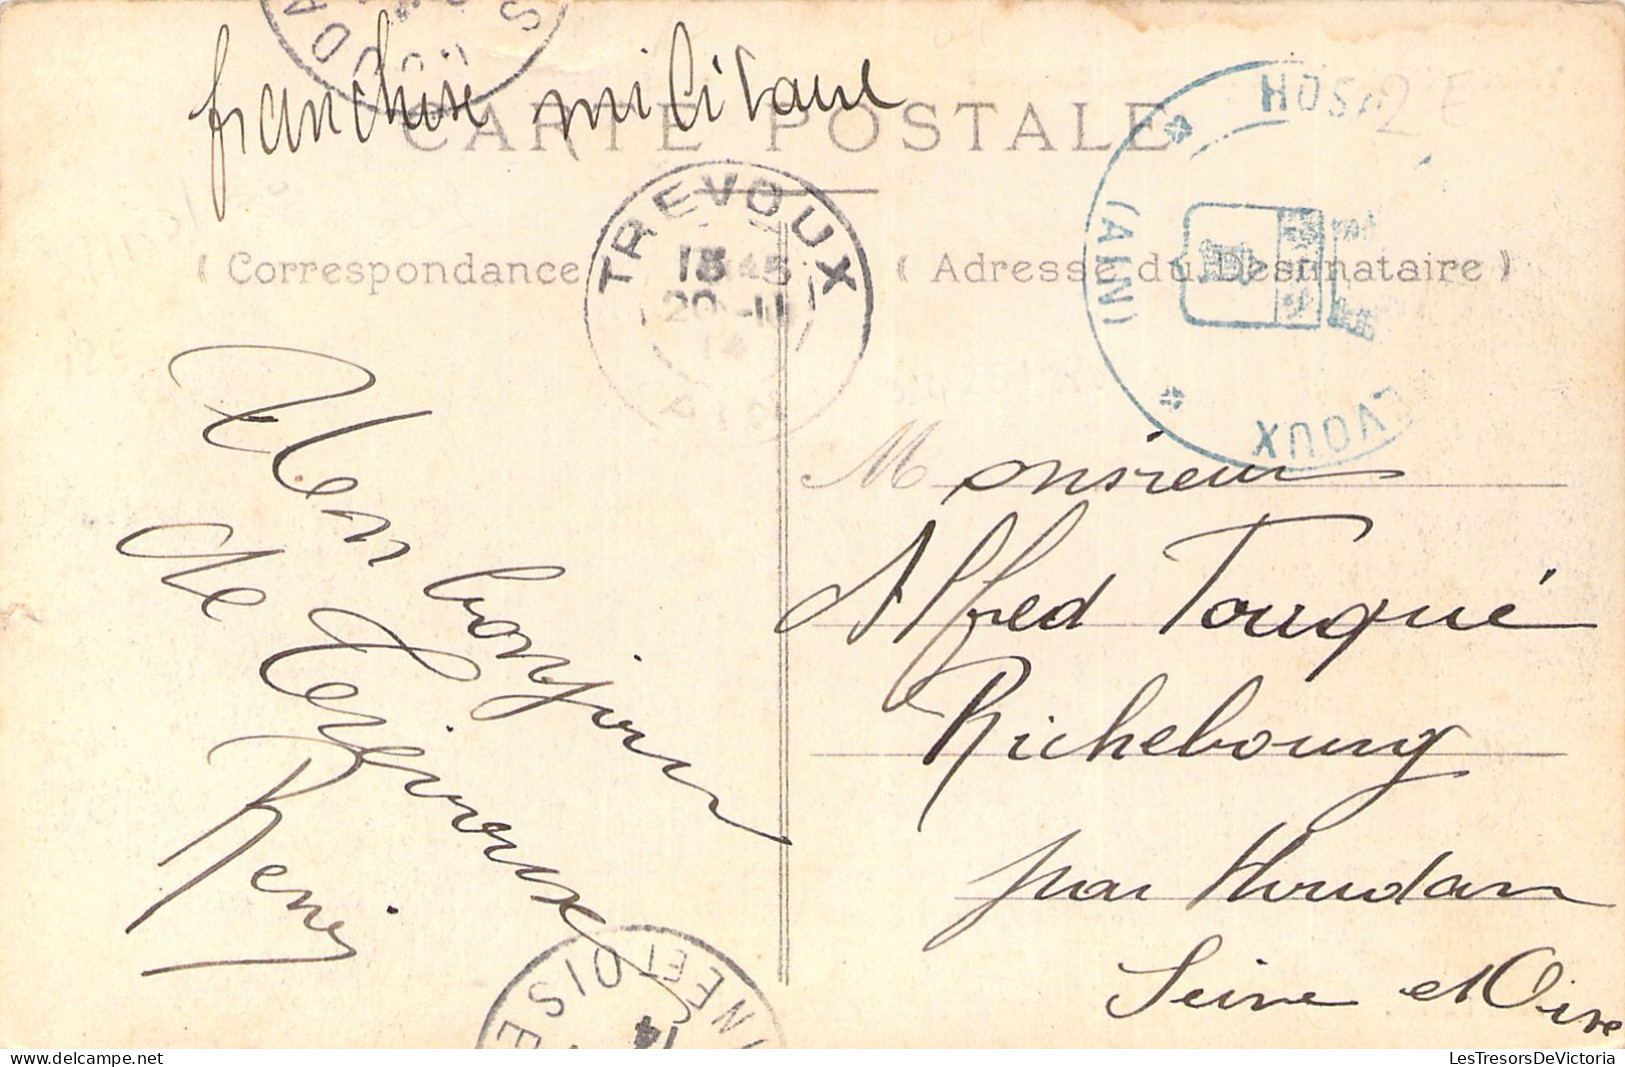 franchise militaire
CARTE POSTALE
HOSP
(AIN)
TREVOUX
TREVOUX
13 45
20-11
14
AIN
( Correspondance
( Adresse du Destinataire )
Mon bonjour
de Trévoux
Remi
Monsieur
Alfred Touqué
Richebourg
par Houdan
Seine et Oise
SEINE ET OISE
14
LesTresorsDeVictoria